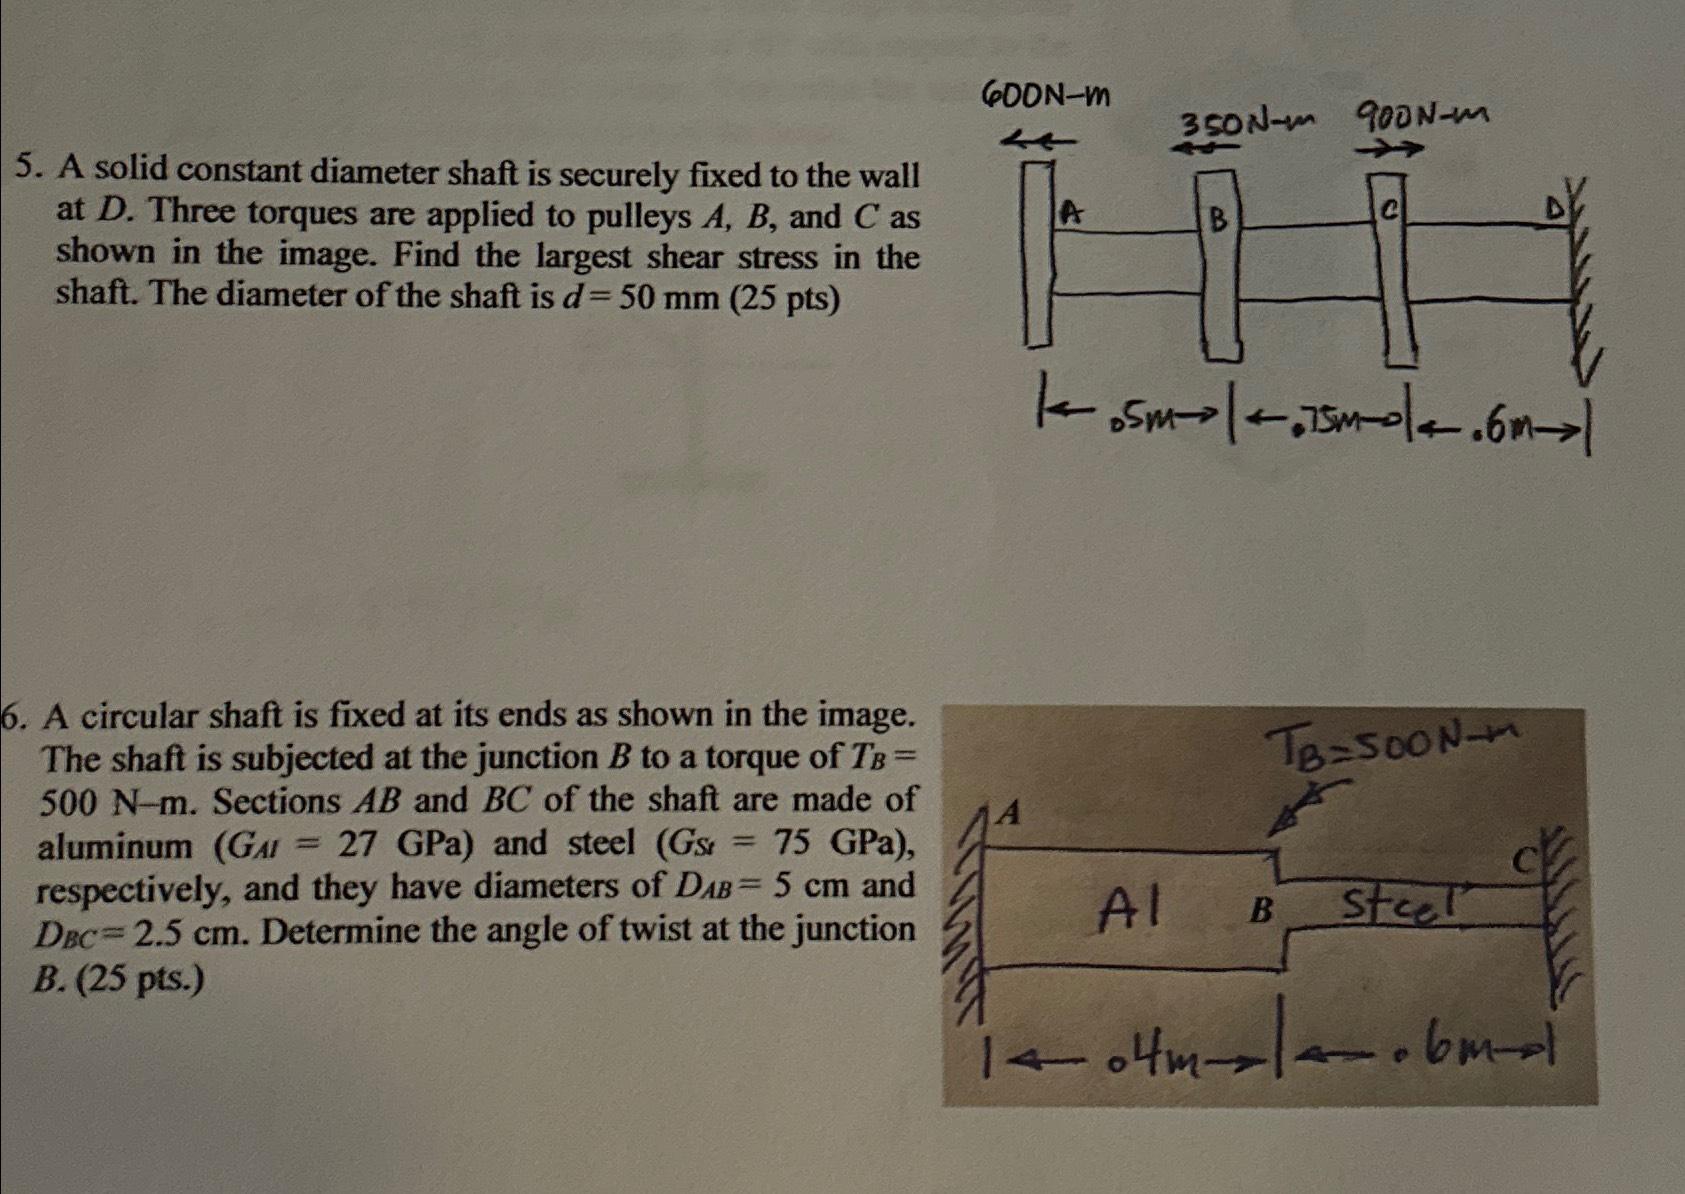 5. A solid constant diameter shaft is securely fixed to the wall
at D. Three torques are applied to pulleys A, B, and C as
shown in the image. Find the largest shear stress in the
shaft. The diameter of the shaft is d = 50 mm (25 pts)
600N-m
350N-m
900N-m
A
B
C
D
.5m
.75m
.6m
6. A circular shaft is fixed at its ends as shown in the image.
The shaft is subjected at the junction B to a torque of TB =
500 N–m. Sections AB and BC of the shaft are made of
aluminum (GAl = 27 GPa) and steel (GSt = 75 GPa),
respectively, and they have diameters of DAB = 5 cm and
DBC = 2.5 cm. Determine the angle of twist at the junction
B. (25 pts.)
TB=500N-m
A
C
Al
B
Steel
.4m
.6m